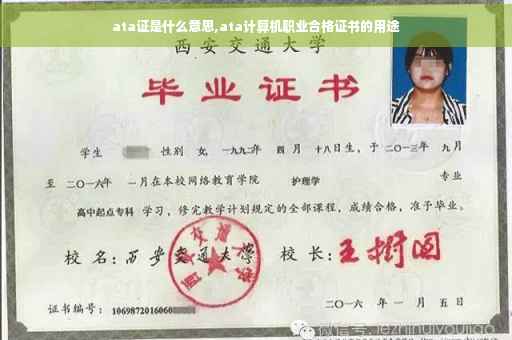 ata证是什么意思,ata计算机职业合格证书的用途
西安交通大学
毕业证书
学生 性别 女,一九九二年 四月 十八日生,于二〇一三年 九月
至 二〇一六年 一月在本校网络教育学院 护理学 专业
高中起点专科 学习,修完教学计划规定的全部课程,成绩合格,准予毕业。
校 名:西安交通大学 校 长:王树国
证书编号:1069872016060
二〇一六 年 一 月 五 日
微信号:jiezhihuiyoujiao